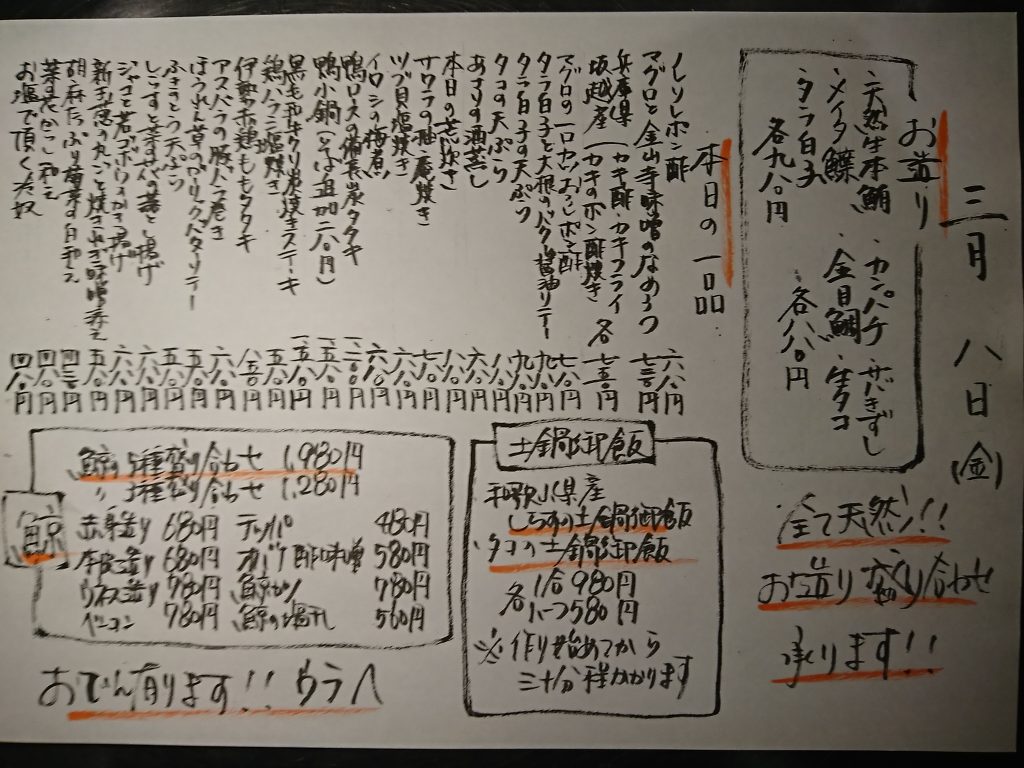 三月 八日(金)
お造り
・天然生本鮪 ・カンパチ ・サバきずし
・メイタ鰈 ・金目鯛 ・生タコ
・タラ白子
各九八〇円 各八八〇円
全て天然!!
お造り盛り合わせ
承ります!!
本日の一品
ノレソレポン酢 六八〇円
マグロと金山寺味噌のなめろう 七三〇円
兵庫県 (カキ酢・カキフライ
坂越産 (カキのポン酢焼き 各 七五〇円
マグロの一口カツおろしポン酢 七八〇円
タラ白子と大根のバター醤油ソテー 九八〇円
タラ白子の天ぷら 九八〇円
タコの天ぷら 八八〇円
あさりの酒蒸し 六八〇円
本日のあら炊き 八八〇円
サワラの柚庵焼き 七八〇円
ツブ貝塩焼き 六八〇円
イワシの梅煮 六八〇円
鴨ロースの備長炭タタキ
鴨小鍋(そば追加二八〇円)
黒毛和牛クリ炭焼きステーキ
鶏バラミ塩焼き 五八〇円
伊勢赤鶏ももタタキ 八五〇円
アスパラの豚バラ巻き 六八〇円
ほうれん草のガーリックバターソテー 五八〇円
ふきのとう天ぷら 五八〇円
しらすと
ジャコと若ゴボウのかき揚げ 六八〇円
新玉葱の丸ごと焼き 味噌添え 五八〇円
胡麻たっぷり 白和え 四三〇円
菜の花からし和え 四八〇円
お塩で頂く冷奴 四八〇円
土鍋御飯
和歌山県産
しらすの土鍋御飯
・タコの土鍋御飯
各 1合980円
ハーフ580円
※作り始めてから
三十分程かかります
鯨
鯨の5種盛り合わせ 1,980円
〃 3種盛り合わせ 1,280円
赤身造り 680円 テッパ 480円
本皮造り 680円 オバケ酢味噌 580円
ウネス造り 780円 鯨カツ 780円
ベーコン 780円 鯨の塩干し 560円
おでん有ります!! ウラへ